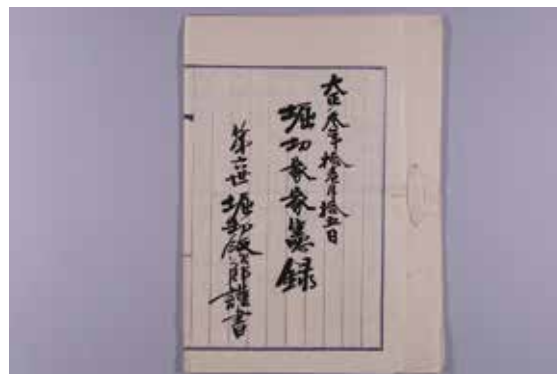 大正参年拾月拾五日
堀切家家憲録
第六世 堀切郎謹書